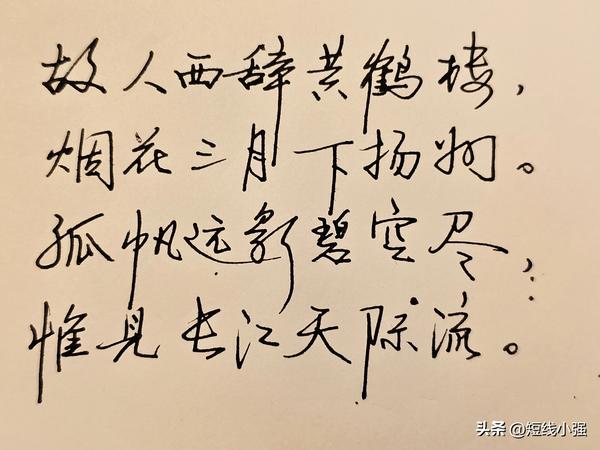 故人西辞黄鹤楼,
烟花三月下扬州。
孤帆远影碧空尽,
惟见长江天际流。
头条 @短线小强